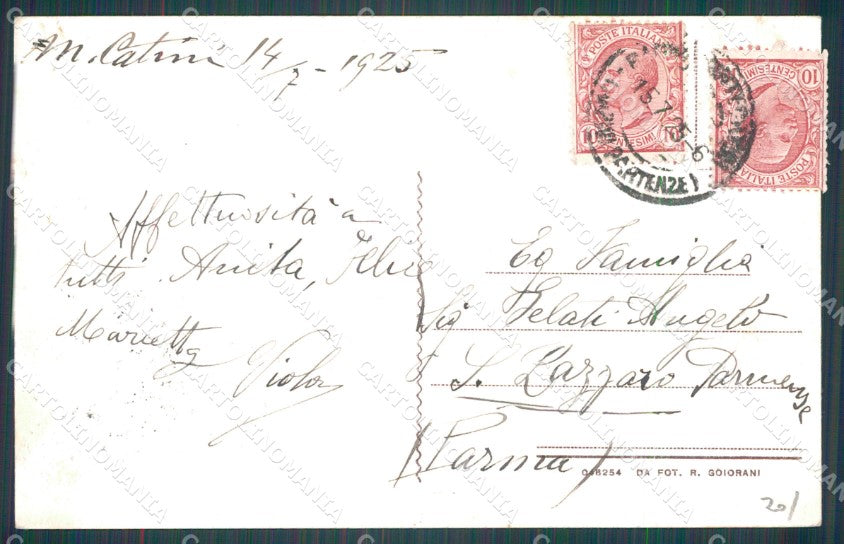 M. Catini 14/7 - 1925
POSTE ITALIANE
CENTESIMI
10
POSTE ITALIANE
CENTESIMI
10
15.7.25-6
(PARTENZE)
Affettuosità a
tutti Anita,
Marietta
Viola
Eg Famiglia
Sig Gelati Angelo
S. Lazzaro Parmense
(Parma)
048254 DA FOT. R. GOIORANI
20/
CARTOLINOMANIA